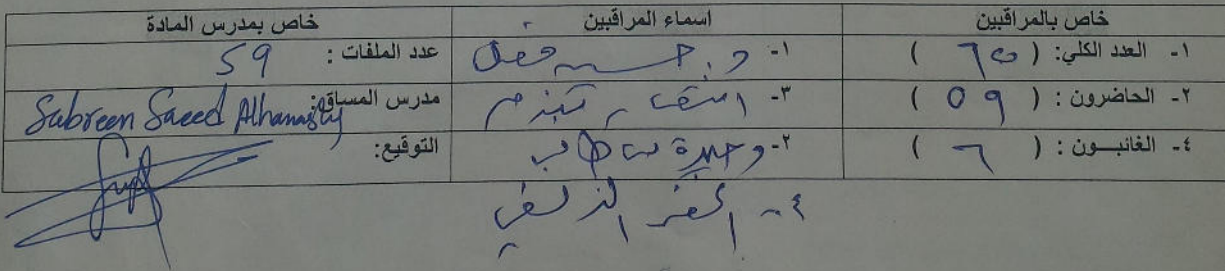 خاص بالمراقبين اسماء المراقبين خاص بمدرس المادة
١- العدد الكلي: ( ٦٥ ) ١- د. حسين عدد الملفات : 59
٢- الحاضرون : ( ٥٩ ) ٣- مدرس المساق: Sabreen Saeed Alhamasby
٤- الغائبــون : ( ٦ ) ٢- وحيدة التوقيع:
٤-